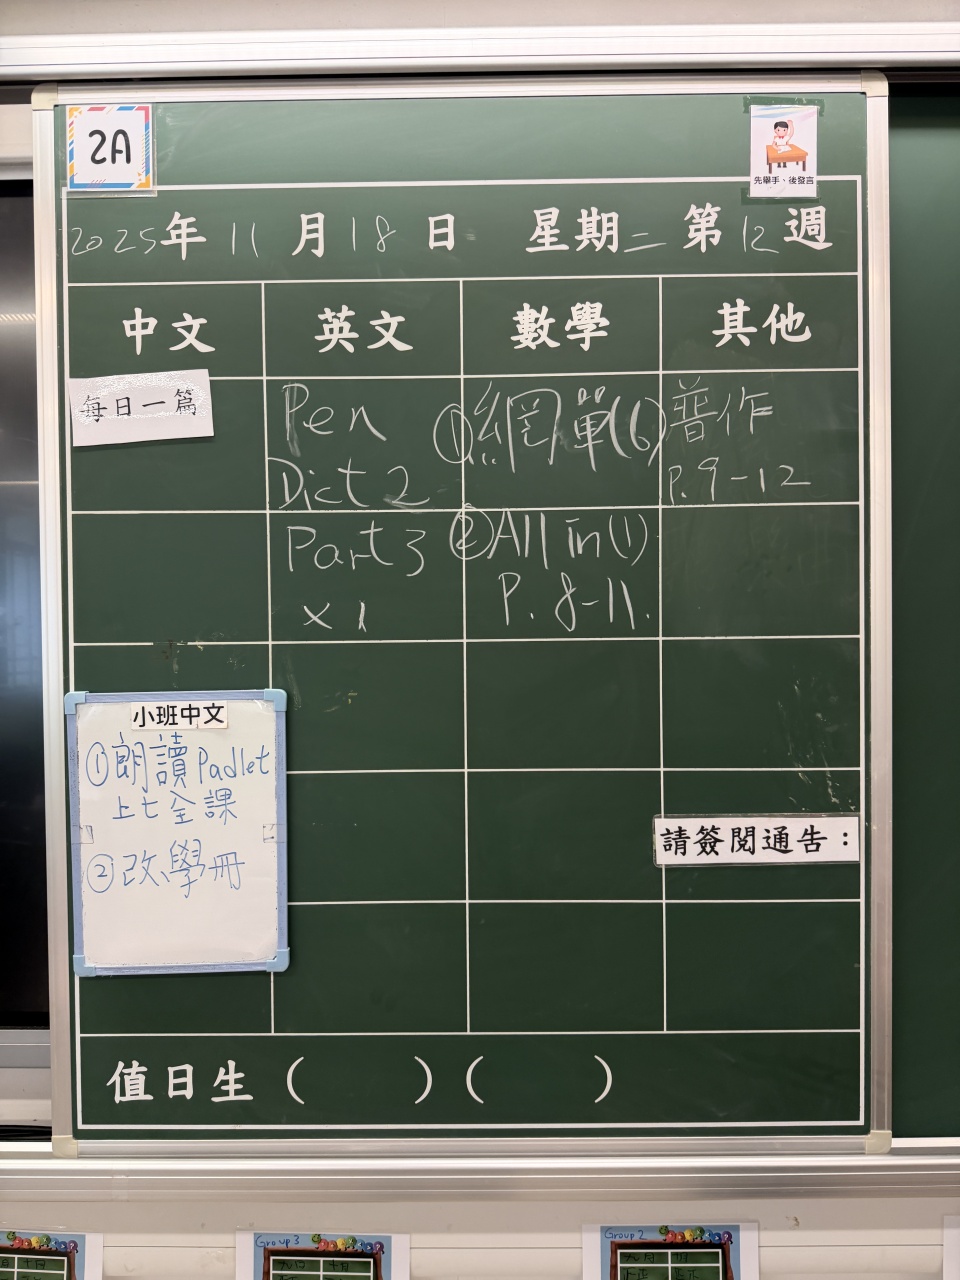 2A
先舉手、後發言
2025年 11 月 18 日 星期二 第 12 週
中文 英文 數學 其他
每日一篇
Pen
Dict 2
Part 3
x 1
①網單(6)
②All in(1)
P. 8-11.
普作
P. 9-12
小班中文
①朗讀Padlet
上七全課
②改學冊
請簽閱通告：
值日生（ ）（ ）
Group 3
Group 2